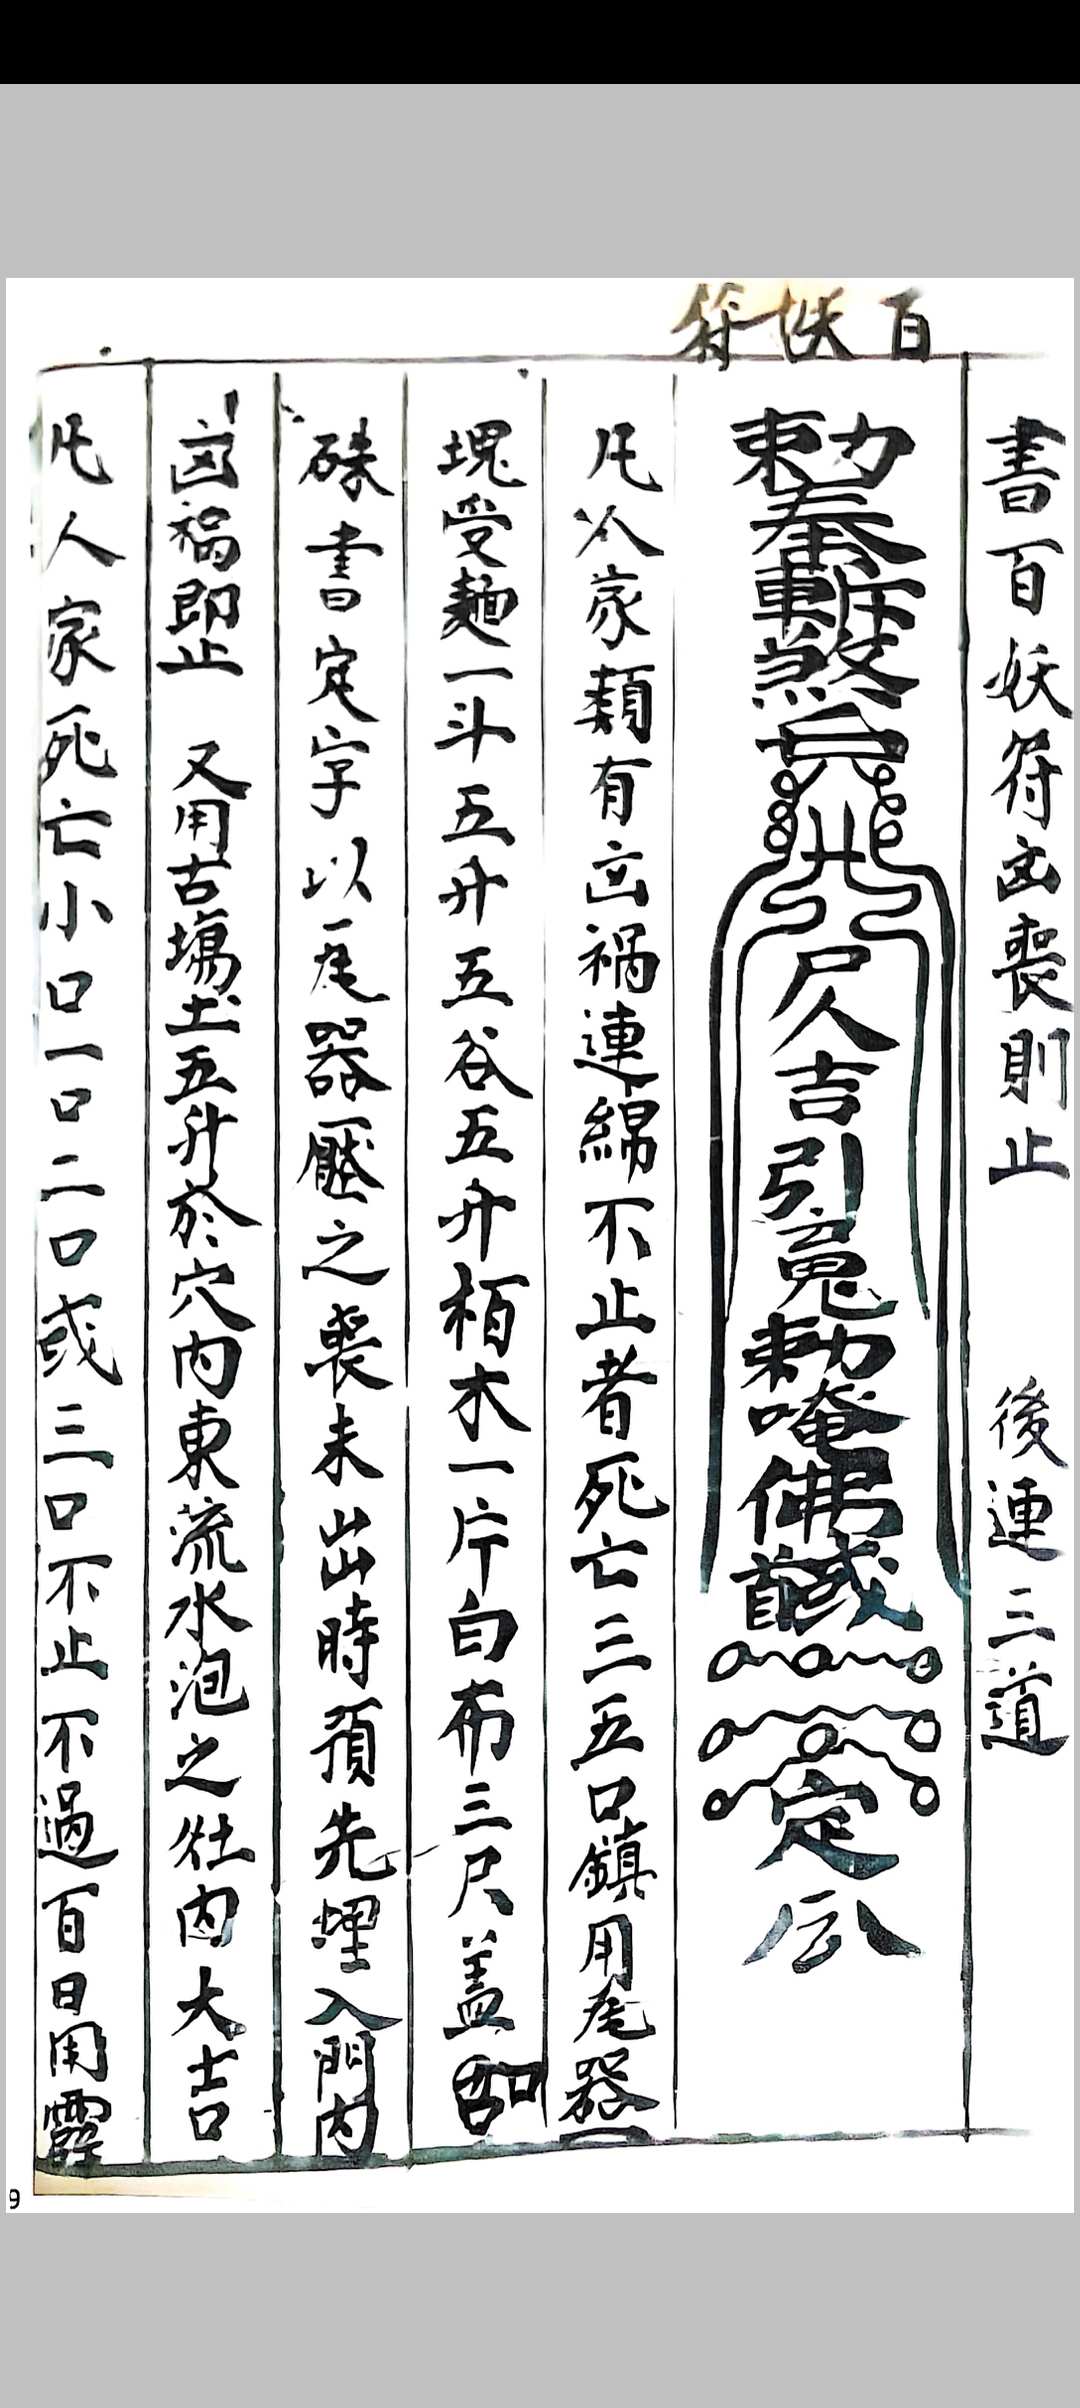 書百妖符凶喪則止　後連三道
百妖符
勅奉斬煞
尸人吉引魂勅唵佛
定
凡人家類有凶禍連綿不止者死亡三五口鎮用瓦器一
塊受麵一斗五升五谷五升栢木一片白布三尺盖
硃書定字以瓦器壓之喪未出時預先埋入門内
凶禍即止　又用古塲土五升於穴内東流水泡之灶内大吉
凡人家死亡小口一口二口或三口不止不過百日用霹
9